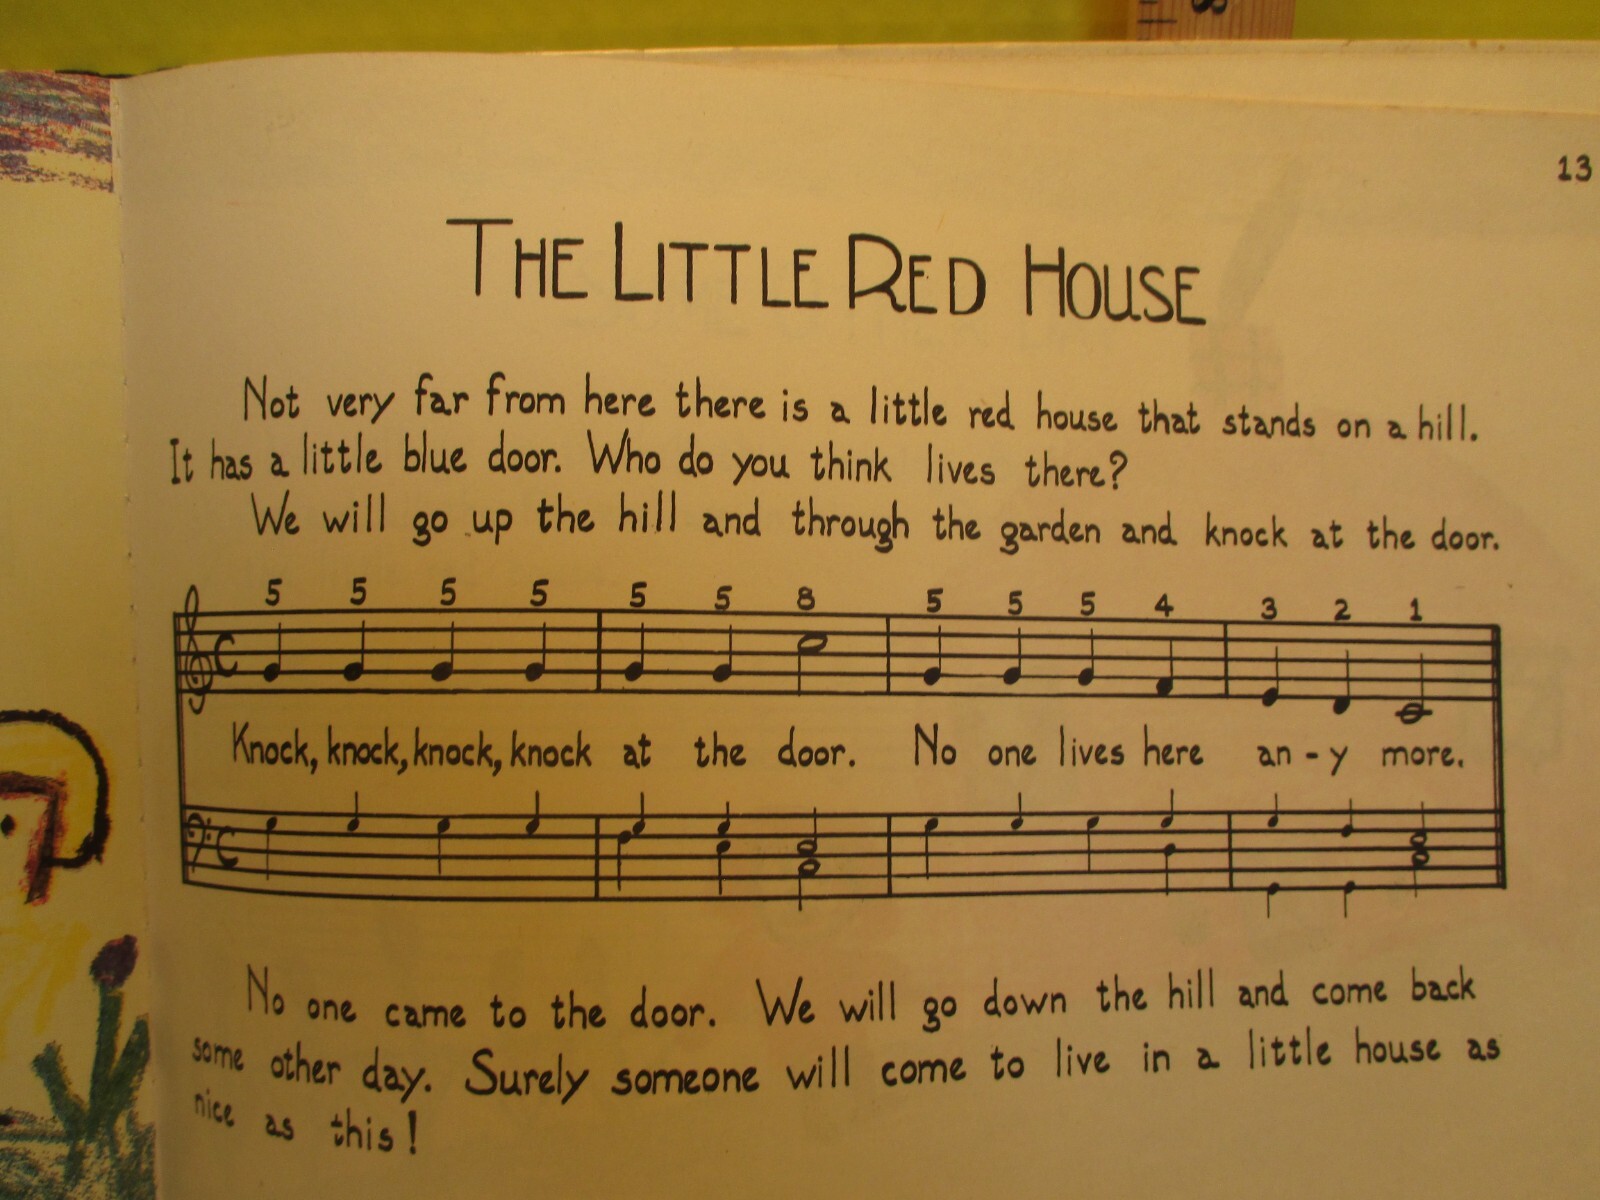 8
13
THE LITTLE RED HOUSE
Not very far from here there is a little red house that stands on a hill.
It has a little blue door. Who do you think lives there?
We will go up the hill and through the garden and knock at the door.
5 5 5 5 5 5 8 5 5 5 4 3 2 1
Knock, knock, knock, knock at the door. No one lives here an-y more.
No one came to the door. We will go down the hill and come back
some other day. Surely someone will come to live in a little house as
nice as this!